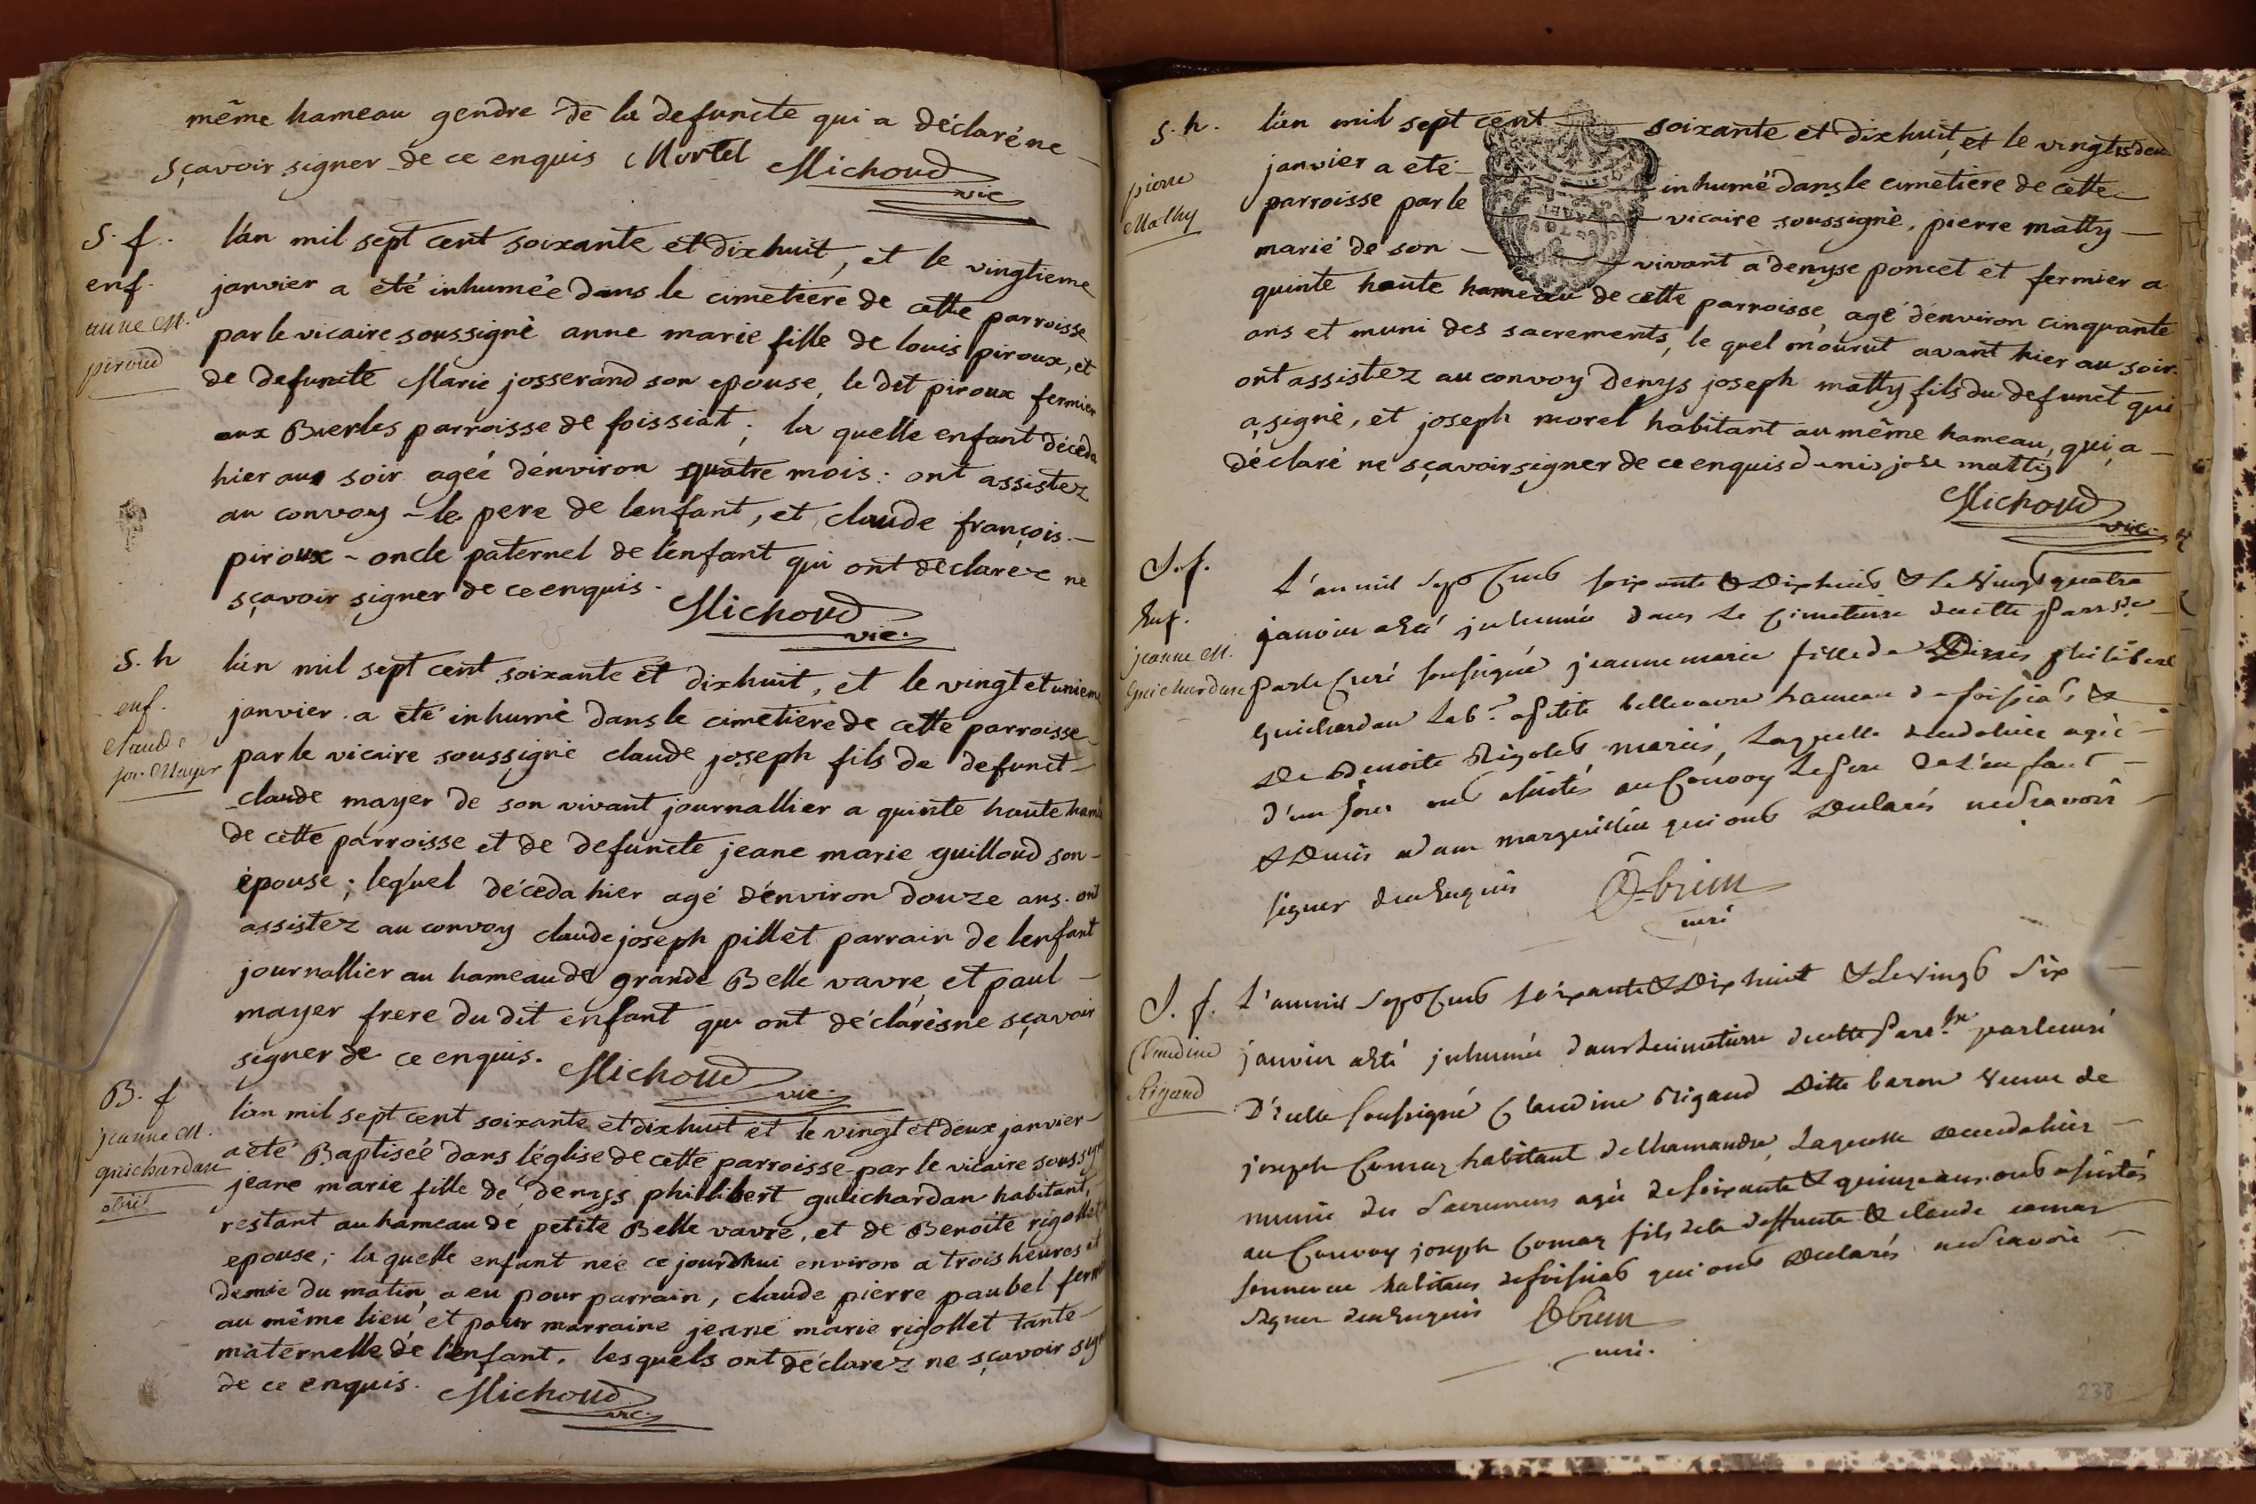 même hameau gendre de la defuncte qui a déclaré ne
sçavoir signer de ce enquis Mortel Michoud
vic
S. f.
enf.
anne M.
piroud
l'an mil sept cent soixante et dixhuit, et le vingtieme
janvier a été inhumée dans le cimetiere de cette parroisse
par le vicaire soussigné anne marie fille de louis piroux, et
de defuncte Marie josserand son epouse, le dit piroux fermier
aux Bverles parroisse de foissiat; la quelle enfant décéda
hier au soir agée d'énviron quatre mois: ont assistez
au convoy le pere de lenfant, et claude françois
piroux oncle paternel de lénfant qui ont déclarez ne
sçavoir signer de ce enquis. Michoud
vic.
S. h
enf.
claude
jos. Mayer
l'an mil sept cent soixante et dixhuit, et le vingt et unieme
janvier a été inhumé dans le cimetiere de cette parroisse
par le vicaire soussigné claude joseph fils de defunct
claude mayer de son vivant journallier a quinte haute ham
de cette parroisse et de defuncte jeane marie guilloud son
épouse; lequel déceda hier agé d'énviron douze ans. ont
assistez au convoy claude joseph pillet parrain de lenfant
journallier au hameau de grande Belle vavre et paul
mayer frere du dit enfant qui ont déclarésne sçavoir
signer de ce enquis. Michoud
vic.
B. f
jeanne M.
guichardan
obiit
l'an mil sept cent soixante et dixhuit et le vingt et deux janvier
a été Baptiseé dans léglise de cette parroisse par le vicaire soussigné
jeane marie fille de denys phillibert guuichardan habitant,
restant au hameau de petite Belle vavre, et de Benoite rigollet
epouse; la quelle enfant née ce jourdhui environ a trois heures et
demie du matin a eu pour parrain, claude pierre paubel ferm
au même lieu et pour marraine jeane marie rigollet tante
maternelle de l'enfant. lesquels ont déclarez ne sçavoir sign
de ce enquis. Michoud
vic.
S. h.
pierre
Mathy
l'an mil sept cent soixante et dixhuit, et le vingtisdeu
janvier a été inhumé dans le cimetiere de cette
parroisse par le vicaire soussigné, pierre matty
marié de son vivant a denyse poncet et fermier a
quinte haute hameau de cette parroisse, agé d'énviron cinquante
ans et muni des sacrements, le quel mourut avant hier au soir.
ont assistez au convoy denys joseph matty fils du defunct qui
a signé, et joseph morel habitant au même hameau, qui a
déclaré ne sçavoir signer de ce enquis denis jose matty
Michoud
vic.
S. f.
Enf.
jeanne M.
Guichardan
L'an mil sept Cent soixante & Dixhuit & Le Vingt quatre
janvier a Eté jnhumée dans Le Cimetiere decette Parr.se
Parle Curé soussigné jeanne marie fille de Denis philibert
Guichardan Lab.r a petite bellevavre hameau de foissiat &
De Benoite Rigolet mariés, Laquelle deceda hier agée
d'un jour ont assistés au Convoy Le Pere De L'enfant
& Denis adam marguillier qui ont Declarés nesçavoir
signer decEnquis Obrien
curé
S. f.
Claudine
Rigaud
L'anmil sept Cent soixante & Dixhuit & Levingt Six
janvier a Eté jnhumée dans Lecimetierre decette Parr.se parlecuré
D'icelle soussigné Claudine Rigaud Ditte baron Veuve de
joseph Comaz habitant de Lhamandre, Laquelle deceda hier
munie des Sacremens agée de soixante & quinze ans. ont assistés
au Convoy joseph Comaz fils dela deffunte & claude comaz
sonneveu habitans defoissiat qui ont Declarés nesçavoir
signer decEnquis Obrien
curé.
238